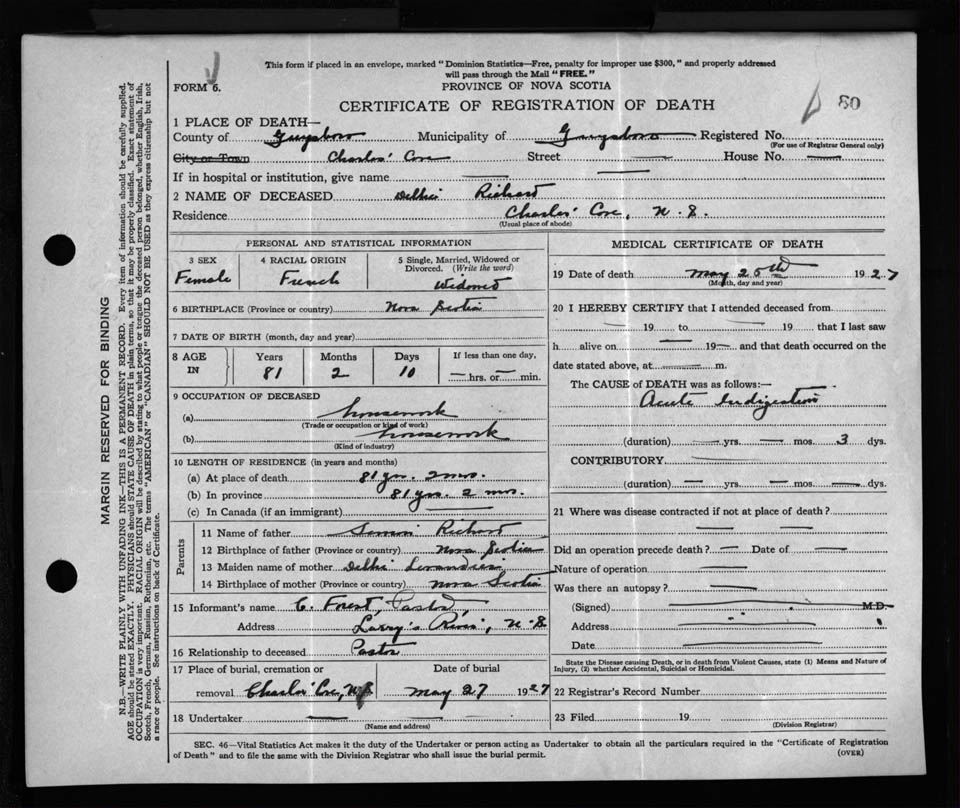 This form if placed in an envelope, marked "Dominion Statistics—Free, penalty for improper use $300," and properly addressed
will pass through the Mail "FREE."
FORM 6.
PROVINCE OF NOVA SCOTIA
CERTIFICATE OF REGISTRATION OF DEATH
80
1 PLACE OF DEATH—
County of Guysboro Municipality of Guysboro Registered No.
(For use of Registrar General only)
City or Town Charlos' Cove Street — House No. —
If in hospital or institution, give name —
2 NAME OF DECEASED Delhie Richard
Residence Charlos' Cove, N.S.
(Usual place of abode)
PERSONAL AND STATISTICAL INFORMATION
3 SEX 4 RACIAL ORIGIN 5 Single, Married, Widowed or
Divorced. (Write the word)
Female French Widowed
6 BIRTHPLACE (Province or country) Nova Scotia
7 DATE OF BIRTH (month, day and year)
8 AGE IN Years Months Days If less than one day,
81 2 10 — hrs. or — min.
9 OCCUPATION OF DECEASED
(a) housework
(Trade or occupation or kind of work)
(b) housework
(Kind of industry)
10 LENGTH OF RESIDENCE (in years and months)
(a) At place of death 81 yrs. 2 mos.
(b) In province 81 yrs. 2 mos.
(c) In Canada (if an immigrant) —
Parents
11 Name of father Simon Richard
12 Birthplace of father (Province or country) Nova Scotia
13 Maiden name of mother Delhie
14 Birthplace of mother (Province or country) Nova Scotia
15 Informant's name C. Forest, Pastor,
Address Larry's River, N.S.
16 Relationship to deceased Pastor
17 Place of burial, cremation or Date of burial
removal Charlos' Cove, N.S. May 27 1927
18 Undertaker —
(Name and address)
MEDICAL CERTIFICATE OF DEATH
19 Date of death May 25th 1927
(Month, day and year)
20 I HEREBY CERTIFY that I attended deceased from
— 19 — to — 19 — that I last saw
h— alive on — 19— and that death occurred on the
date stated above, at — m.
The CAUSE of DEATH was as follows:—
Acute Indigestion
(duration) — yrs. — mos. 3 dys.
CONTRIBUTORY —
(duration) — yrs. — mos. — dys.
21 Where was disease contracted if not at place of death? —
Did an operation precede death? — Date of —
Nature of operation —
Was there an autopsy? —
(Signed) — M.D.
Address —
Date —
State the Disease causing Death, or in death from Violent Causes, state (1) Means and Nature of
Injury, (2) whether Accidental, Suicidal or Homicidal.
22 Registrar's Record Number
23 Filed 19
(Division Registrar)
SEC. 46—Vital Statistics Act makes it the duty of the Undertaker or person acting as Undertaker to obtain all the particulars required in the "Certificate of Registration
of Death" and to file the same with the Division Registrar who shall issue the burial permit.
(OVER)
MARGIN RESERVED FOR BINDING
N.B.—WRITE PLAINLY WITH UNFADING INK—THIS IS A PERMANENT RECORD. Every item of information should be carefully supplied.
AGE should be stated EXACTLY. PHYSICIANS should STATE CAUSE OF DEATH in plain terms, so that it may be properly classified. Exact statement of
OCCUPATION is very important. RACIAL ORIGIN will be described by stating to what people or tongue the deceased person belonged, whether English, Irish,
Scotch, French, German, Russian, Ruthenian, etc. The terms "AMERICAN" or "CANADIAN" SHOULD NOT BE USED as they express citizenship but not
a race or people. See instructions on back of Certificate.